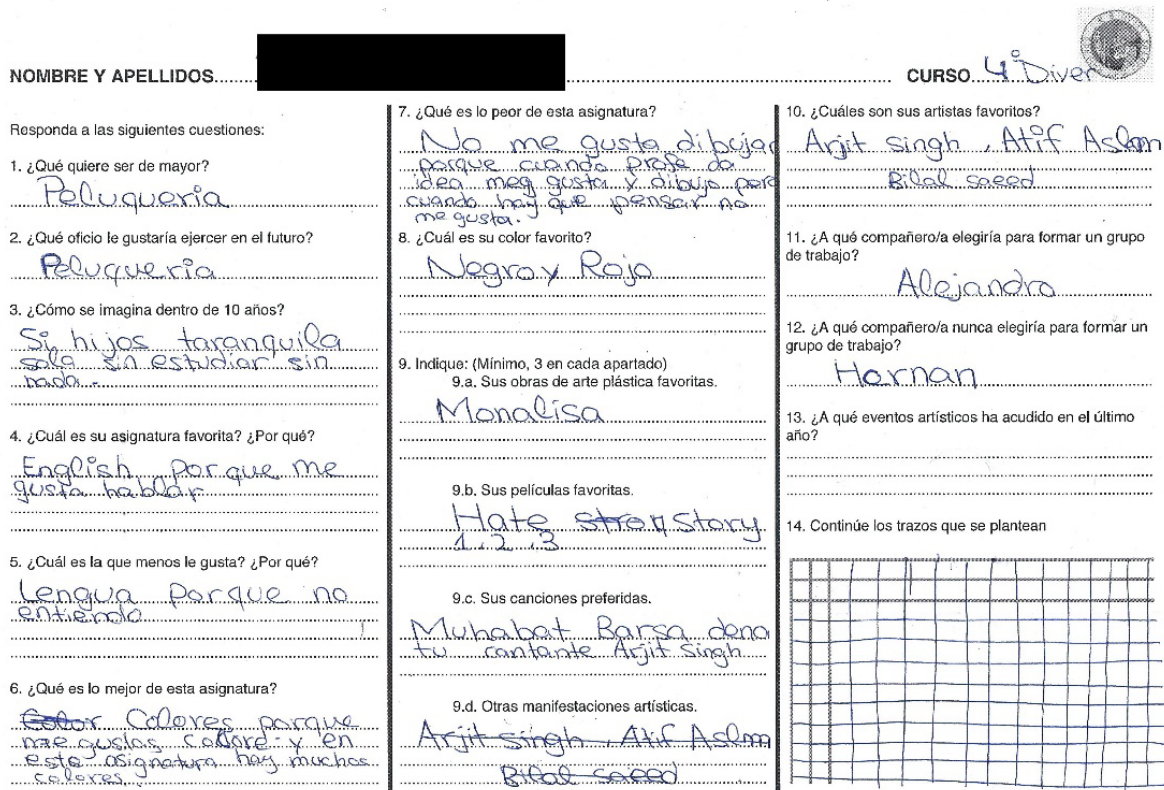 NOMBRE Y APELLIDOS
CURSO 4º Diver
Responda a las siguientes cuestiones:
1. ¿Qué quiere ser de mayor?
Peluqueria
2. ¿Qué oficio le gustaría ejercer en el futuro?
Peluqueria
3. ¿Cómo se imagina dentro de 10 años?
Si, hijos taranquila
sola sin estudiar, sin
nada.
4. ¿Cuál es su asignatura favorita? ¿Por qué?
English porque me
gusta hablar
5. ¿Cuál es la que menos le gusta? ¿Por qué?
Lengua porque no
entiendo
6. ¿Qué es lo mejor de esta asignatura?
Color Colores porque
me gustas colore y en
este asignatura hay muchos
colores.
7. ¿Qué es lo peor de esta asignatura?
No me gusta dibujar
porque cuando profe da
idea meg gusta y dibujo pero
cuando hay que pensar no
me gusta.
8. ¿Cuál es su color favorito?
Negro y Rojo
9. Indique: (Mínimo, 3 en cada apartado)
9.a. Sus obras de arte plástica favoritas.
Monalisa
9.b. Sus películas favoritas.
Hate story
1, 2, 3
9.c. Sus canciones preferidas.
Muhabat Barsa dena
tu cantante Arjit Singh
9.d. Otras manifestaciones artísticas.
Arjit singh, Atif Aslm
Bilal saeed
10. ¿Cuáles son sus artistas favoritos?
Arjit singh, Atif Aslam
Bilal saeed
11. ¿A qué compañero/a elegiría para formar un grupo
de trabajo?
Alejandro
12. ¿A qué compañero/a nunca elegiría para formar un
grupo de trabajo?
Hernan
13. ¿A qué eventos artísticos ha acudido en el último
año?
14. Continúe los trazos que se plantean